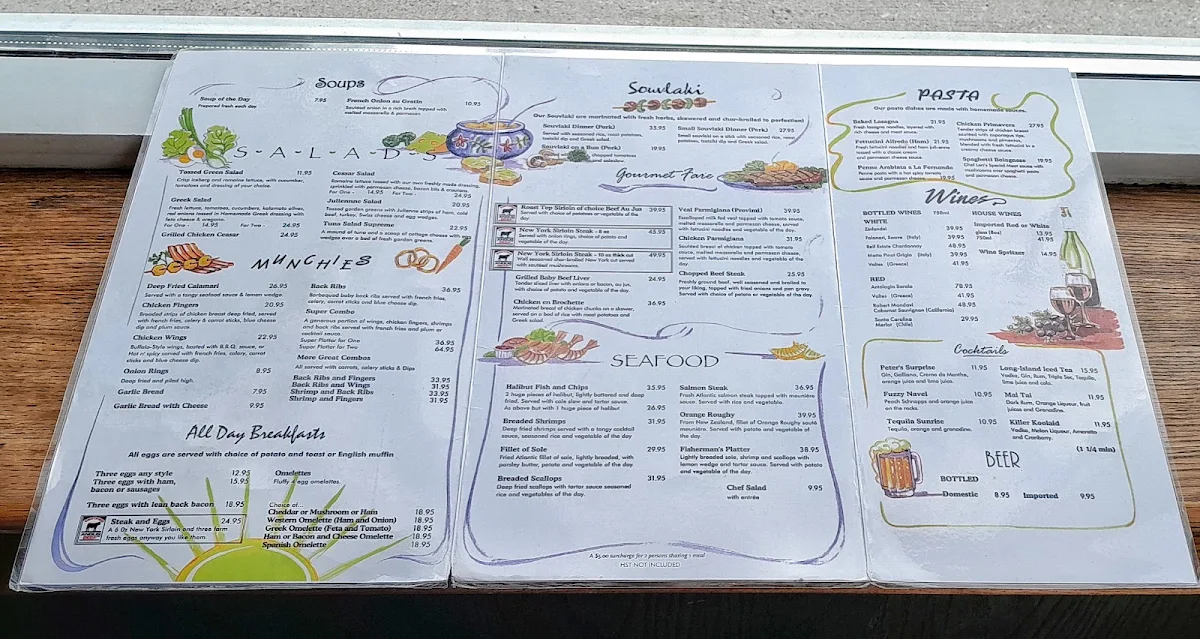 Soups
Soup of the Day 7.95
Prepared fresh each day
French Onion au Gratin 10.95
Sautéed onion in a rich broth topped with
melted mozzarella & parmesan.
S-A-L-A-D-S
Tossed Green Salad 11.95
Crisp iceberg and romaine lettuce, with cucumber,
tomatoes and dressing of your choice.
Greek Salad
Fresh lettuce, tomatoes, cucumbers, kalamata olives,
red onions tossed in Homemade Greek dressing with
feta cheese & oregano.
For One - 14.95 For Two - 24.95
Grilled Chicken Ceasar 24.95
Ceasar Salad
Romaine lettuce tossed with our own freshly made dressing,
sprinkled with parmesan cheese, bacon bits & croutons.
For One - 14.95 For Two - 24.95
Julienne Salad 20.95
Tossed garden greens with Julienne strips of ham, cold
beef, turkey, Swiss cheese and egg wedges.
Tuna Salad Supreme 22.95
A mound of tuna and a scoop of cottage cheese with egg
wedges over a bed of fresh garden greens.
MUNCHIES
Deep Fried Calamari 26.95
Served with a tangy seafood sauce & lemon wedge.
Chicken Fingers 20.95
Breaded strips of chicken breast deep fried, served
with french fries, celery & carrot sticks, blue cheese
dip and plum sauce.
Chicken Wings 22.95
Buffalo-Style wings, basted with B.B.Q. sauce, or
Hot n' spicy served with french fries, celery, carrot
sticks and blue cheese dip.
Onion Rings 8.95
Deep fried and piled high.
Garlic Bread 7.95
Garlic Bread with Cheese 9.95
Back Ribs 36.95
Barbequed baby back ribs served with french fries,
celery, carrot sticks and blue cheese dip.
Super Combo
A generous portion of wings, chicken fingers, shrimps
and back ribs served with french fries and plum or
cocktail sauce.
Super Platter for One 36.95
Super Platter for Two 64.95
More Great Combos
All served with carrots, celery sticks & Dips
Back Ribs and Fingers 33.95
Back Ribs and Wings 31.95
Shrimp and Back Ribs 33.95
Shrimp and Fingers 31.95
All Day Breakfasts
All eggs are served with choice of potato and toast or English muffin
Three eggs any style 12.95
Three eggs with ham, 15.95
bacon or sausages
Three eggs with lean back bacon 18.95
Steak and Eggs 24.95
A 6 Oz New York Sirloin and three farm
fresh eggs anyway you like them.
Omelettes
Fluffy 4 egg omelettes.
Choice of...
Cheddar or Mushroom or Ham 18.95
Western Omelette (Ham and Onion) 18.95
Greek Omelette (Feta and Tomato) 18.95
Ham or Bacon and Cheese Omelette 18.95
Spanish Omelette 18.95
Souvlaki
Our Souvlaki are marinated with fresh herbs, skewered and char-broiled to perfection!
Souvlaki Dinner (Pork) 33.95
Served with seasoned rice, roast potatoes,
tzatziki dip and Greek salad.
Souvlaki on a Bun (Pork) 19.95
chopped tomatoes
Small Souvlaki Dinner (Pork) 27.95
Small souvlaki on a stick with seasoned rice, roast
potatoes, tzatziki dip and Greek salad.
Gourmet Fare
Roast Top Sirloin of choice Beef Au Jus 39.95
Served with choice of potatoes or vegetable of the
day.
New York Sirloin Steak - 8 oz 45.95
Served with onion rings, choice of potato and
vegetable of the day.
New York Sirloin Steak - 10 oz thick cut 49.95
Well seasoned char-broiled New York cut served
with sautéed mushrooms.
Grilled Baby Beef Liver 24.95
Tender sliced liver with onions or bacon, au jus,
with choice of potato and vegetable of the day.
Chicken en Brochette 36.95
Marinated breast of chicken chunks on a skewer,
served on a bed of rice with roast potatoes and
Greek salad.
Veal Parmigiana (Provimi) 39.95
Escalloped milk fed veal topped with tomato sauce,
melted mozzarella and parmesan cheese, served
with fettucini noodles and vegetable of the day.
Chicken Parmigiana 31.95
Sautéed breast of chicken topped with tomato
sauce, melted mozzarella and parmesan cheese,
served with fettuccini noodles and vegetable of the
day.
Chopped Beef Steak 25.95
Freshly ground beef, well seasoned and broiled to
your liking, topped with fried onions and pan gravy.
Served with choice of potato or vegetable of the day.
SEAFOOD
Halibut Fish and Chips 35.95
2 huge pieces of halibut, lightly battered and deep
fried. Served with cole slaw and tartar sauce.
As above but with 1 huge piece of halibut 26.95
Breaded Shrimps 31.95
Deep fried shrimps served with a tangy cocktail
sauce, seasoned rice and vegetable of the day
Fillet of Sole 29.95
Fried Atlantic fillet of sole, lightly breaded, with
parsley butter, potato and vegetable of the day
Breaded Scallops 31.95
Deep fried scallops with tartar sauce seasoned
rice and vegetables of the day.
Salmon Steak 36.95
Fresh Atlantic salmon steak topped with meunière
sauce. Served with rice and vegetable.
Orange Roughy 39.95
From New Zealand, fillet of Orange Roughy sauté
meunière. Served with potato and vegetable of
the day.
Fisherman's Platter 38.95
Lightly breaded sole, shrimp and scallops with
lemon wedge and tartar sauce. Served with potato
and vegetable of the day.
Chef Salad 9.95
with entrée
A $5.00 surcharge for 2 persons sharing 1 meal
HST NOT INCLUDED
PASTA
Our pasta dishes are made with homemade sauces.
Baked Lasagna 21.95
Fresh lasagna noodles, layered with
rich cheese and meat sauce.
Fettucini Alfredo (Ham) 21.95
Fresh fettucini noodles and ham julienne
tossed with a classic cream
and parmesan cheese sauce.
Penne Arrabiata a La Fernando
Penne pasta with a hot spicy tomato
sauce and parmesan cheese. 19.95
Chicken Primavera 27.95
Tender strips of chicken breast
sautéed with asparagus tips,
mushrooms and pimentos,
blended with fresh fettucini in a
creamy cheese sauce.
Spaghetti Bolognese 19.95
Chef Len's Special Meat sauce with
mushrooms over spaghetti pasta
and parmesan cheese.
Wines
BOTTLED WINES 750ml
WHITE
Zinfandel 39.95
Folonari, Soave (Italy) 39.95
Bell Estate Chardonnay 48.95
Motto Pinot Grigio (Italy) 39.95
Valtes (Greece) 41.95
RED
Antologia Barolo 78.95
Valtes (Greece) 41.95
Robert Mondavi 48.95
Cabernet Sauvignon (California)
Santa Carolina 29.95
Merlot (Chile)
HOUSE WINES
Imported Red or White
glass (8oz) 13.95
750ml 41.95
Wine Spritzer 14.95
Cocktails
Peter's Surprise 11.95
Gin, Galliano, Creme de Menthe,
orange juice and lime juice.
Fuzzy Navel 10.95
Peach Schnapps and orange juice
on the rocks.
Tequila Sunrise 10.95
Tequila, orange and grenadine.
Long-Island Iced Tea 15.95
Vodka, Gin, Rum, Triple Sec, Tequila,
lime juice and cola.
Mai Tai 11.95
Dark Rum, Orange Liqueur, fruit
juices and Grenadine.
Killer Koolaid 11.95
Vodka, Melon Liqueur, Amaretto
and Cranberry.
(1 1/4 min)
BEER
BOTTLED
Domestic 8.95 Imported 9.95